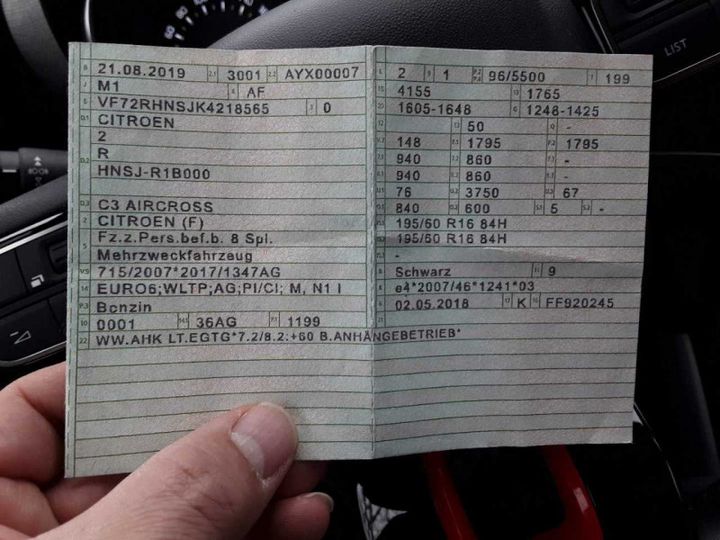 B 21.08.2019 2.1 3001 2.2 AYX00007
J M1 4 AF
E VF72RHNSJK4218565 3 0
D.1 CITROEN
2
D.2 R
HNSJ-R1B000
D.3 C3 AIRCROSS
2 CITROEN (F)
5 Fz.z.Pers.bef.b. 8 Spl.
Mehrzweckfahrzeug
V.9 715/2007*2017/1347AG
14 EURO6;WLTP;AG;PI/CI; M, N1 I
P.3 Benzin
10 0001 14.1 36AG P.1 1199
22 WW.AHK LT.EGTG*7.2/8.2:+60 B.ANHÄNGEBETRIEB*
L 2 9 1 P.2 P.4 96/5500 T 199
18 4155 19 1765
20 1605-1648 G 1248-1425
12 - 13 50 Q -
V.7 148 F.1 1795 F.2 1795
7.1 940 7.2 860 7.3 -
8.1 940 8.2 860 8.3 -
U.1 76 U.2 3750 U.3 67
O.1 840 O.2 600 S.1 5 S.2 -
15.1 195/60 R16 84H
15.2 195/60 R16 84H
15.3 -
R Schwarz 11 9
K e4*2007/46*1241*03
6 02.05.2018 17 K 16 FF920245
21
100
120
LIST